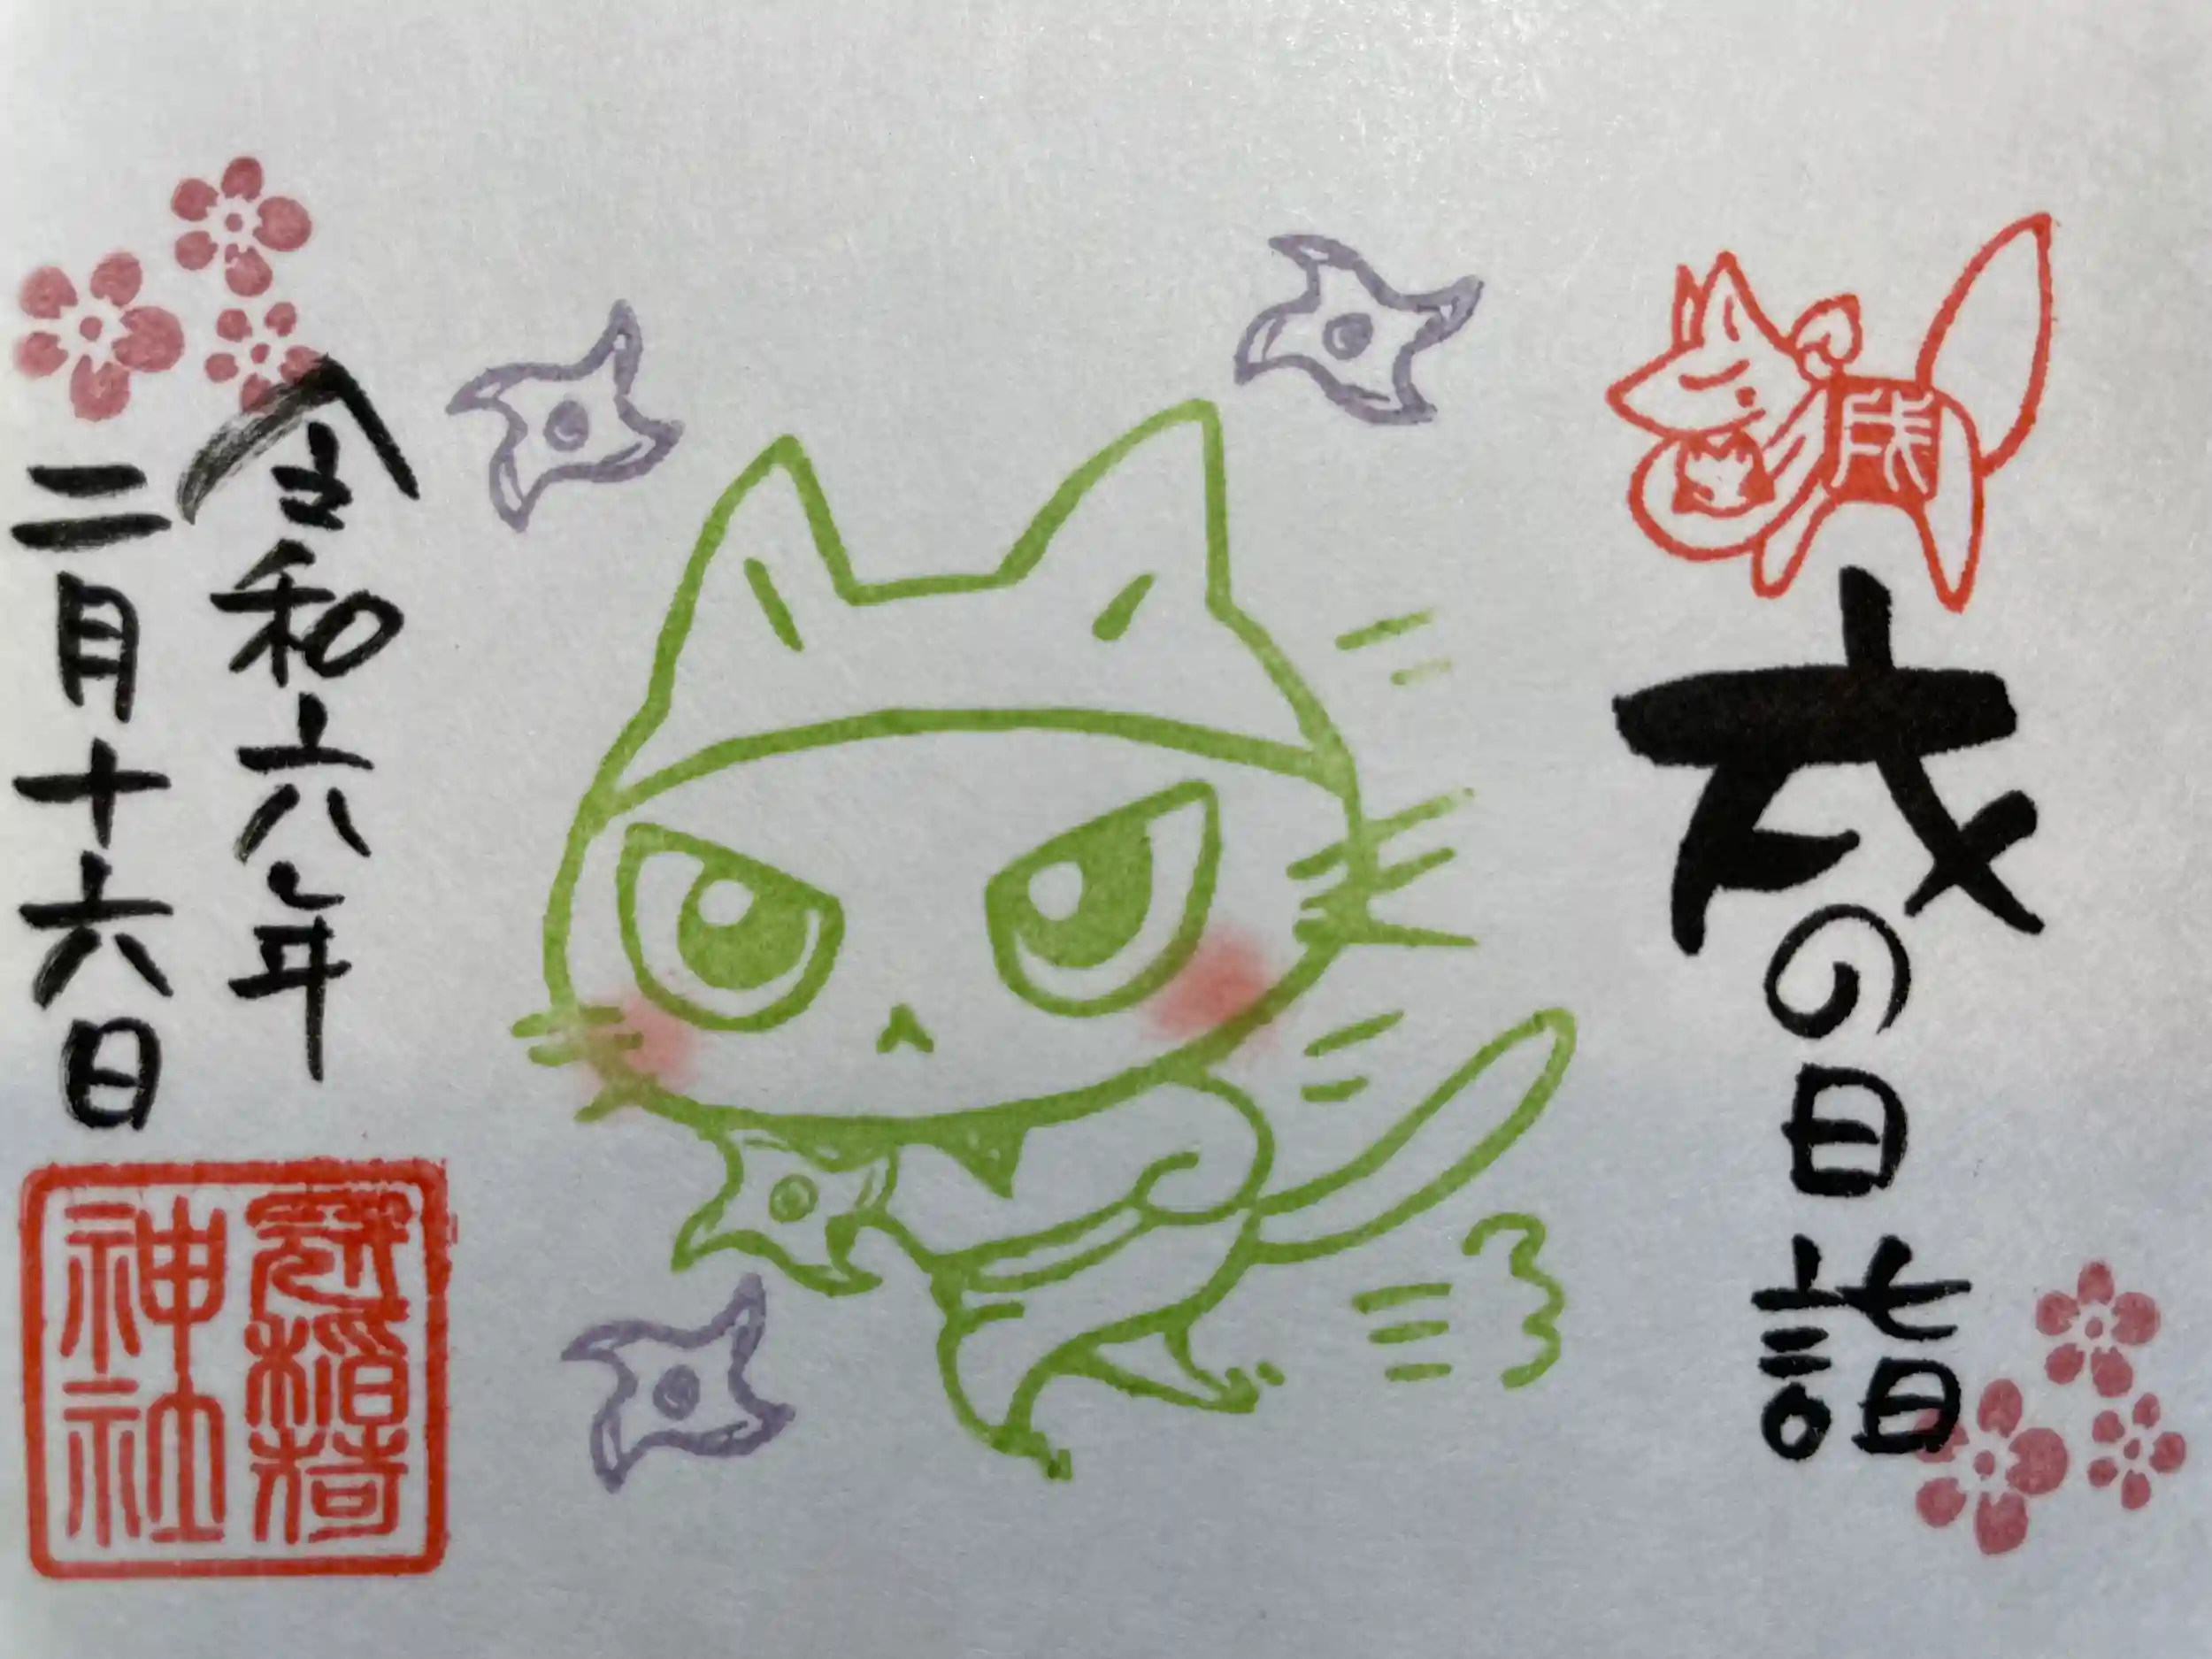 戌
戌の日詣
令和六年
二月十六日
冠稲荷
神社